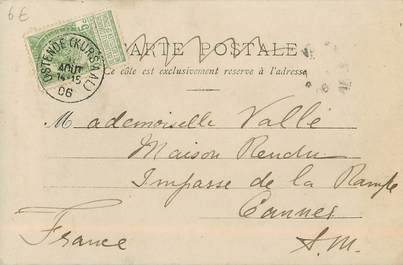 6€
CARTE POSTALE
Ce côté est exclusivement réservé à l'adresse
OSTENDE (KURSAAL)
AOUT
14-15
06
Mademoiselle Vallé
Maison Rendu
Impasse de la Rampe
Cannes
France A.M.